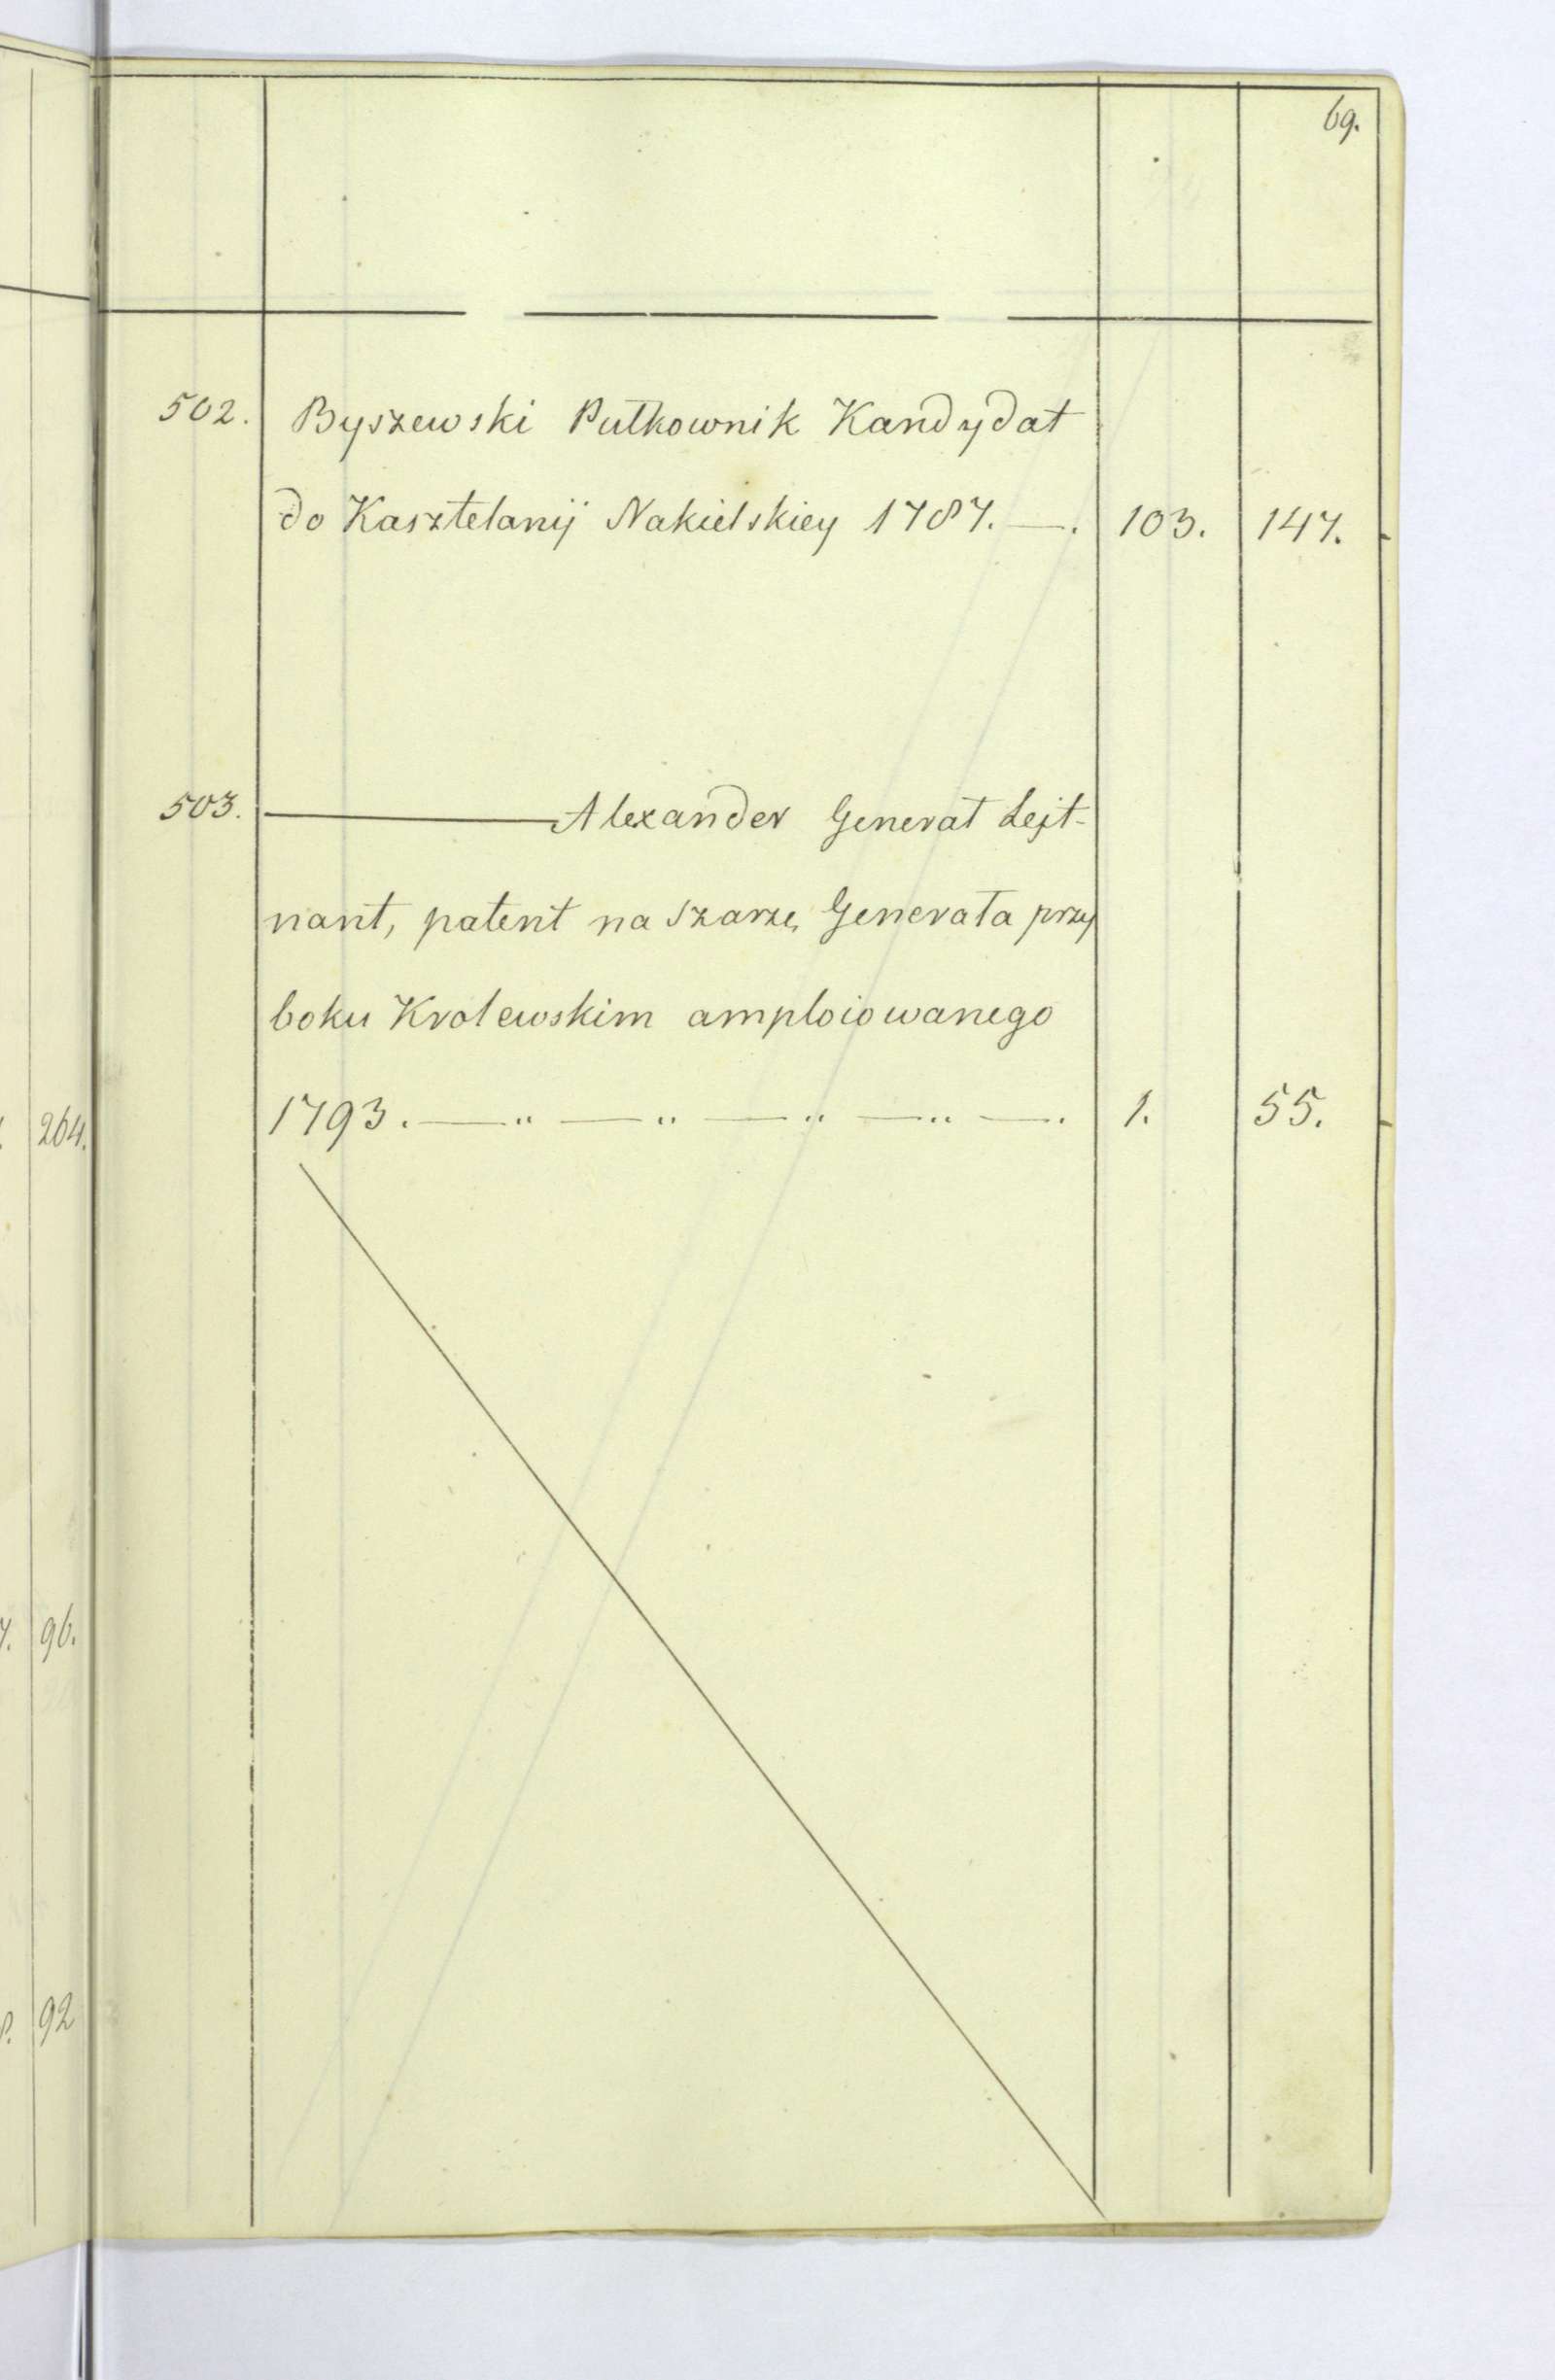 69.
502. Byszewski Pułkownik Kandydat
do Kasztelanij Nakielskiey 1787. —. 103. 147.
503. ——— Alexander Generał Lejt-
nant, patent na szarżę Generała przy
boku Krolewskim amploiowanego
1793. — " — " — " — " — . 1. 55.
264.
96.
92